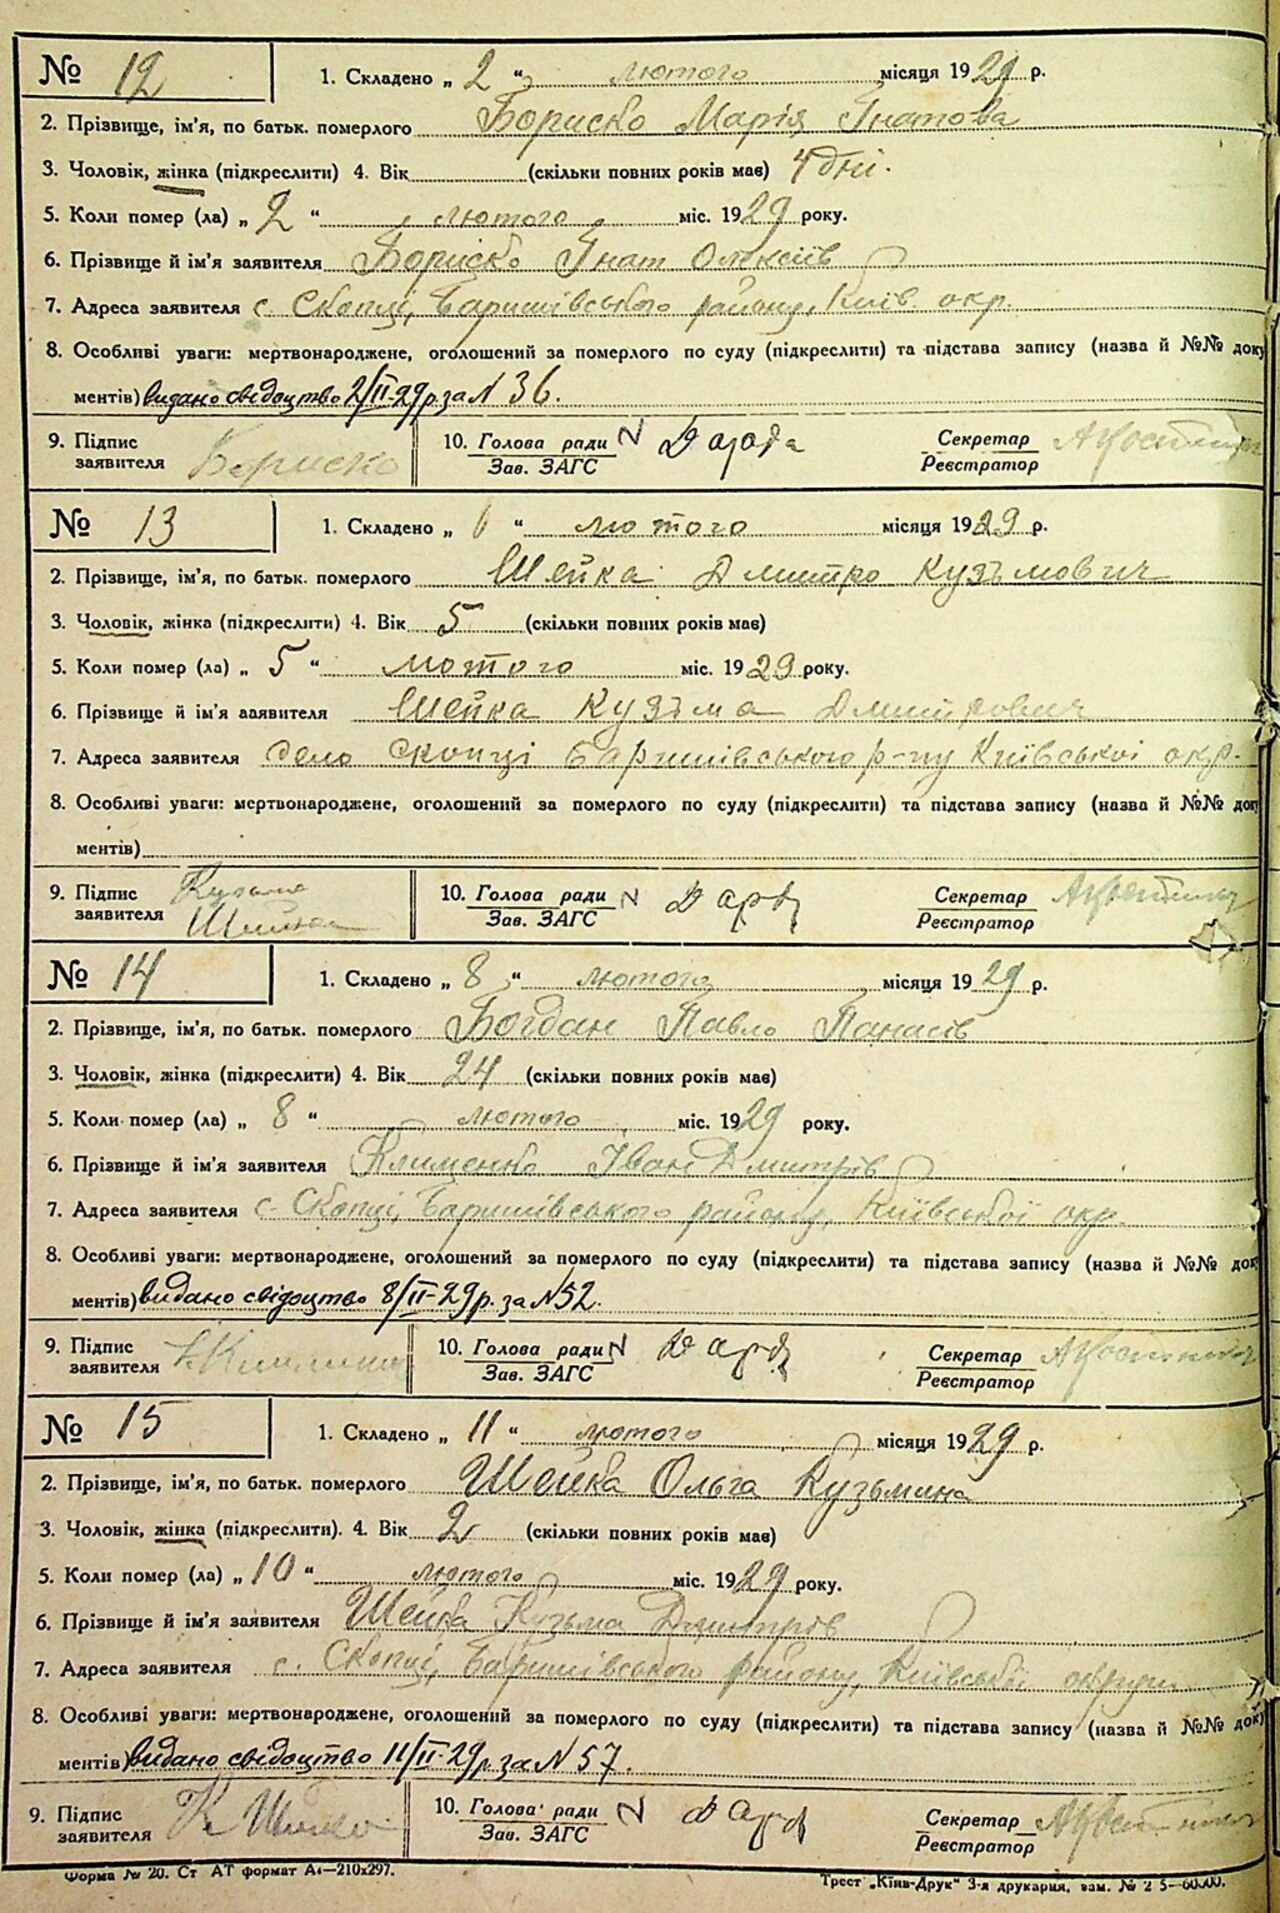 № 12 1. Складено „ 2 “ лютого місяця 1929 р.
2. Прізвище, ім'я, по батьк. померлого Бориско Марія Гнатова
3. Чоловік, жінка (підкреслити) 4. Вік (скільки повних років має) 4 дні.
5. Коли помер (ла) „ 2 “ лютого міс. 1929 року.
6. Прізвище й ім'я заявителя Бориско Гнат Олексіїв
7. Адреса заявителя с. Скопці, Баришівського району, Київ. окр.
8. Особливі уваги: мертвонароджене, оголошений за померлого по суду (підкреслити) та підстава запису (назва й №№ доку
ментів) видано свідоцтво 2/II-29 р. за N 36.
9. Підпис заявителя Бориско 10. Голова ради Зав. ЗАГС Секретар Реєстратор
№ 13 1. Складено „ 6 “ лютого місяця 1929 р.
2. Прізвище, ім'я, по батьк. померлого Шейка Дмитро Кузьмович
3. Чоловік, жінка (підкреслити) 4. Вік 5 (скільки повних років має)
5. Коли помер (ла) „ 5 “ лютого міс. 1929 року.
6. Прізвище й ім'я заявителя Шейка Кузьма Дмитрович
7. Адреса заявителя село Скопці Баришівського р-ну Київської окр.
8. Особливі уваги: мертвонароджене, оголошений за померлого по суду (підкреслити) та підстава запису (назва й №№ доку
ментів)
9. Підпис заявителя Кузьма 10. Голова ради Зав. ЗАГС Секретар Реєстратор
№ 14 1. Складено „ 8 “ лютого місяця 1929 р.
2. Прізвище, ім'я, по батьк. померлого Богдан Павло Панасів
3. Чоловік, жінка (підкреслити) 4. Вік 24 (скільки повних років має)
5. Коли помер (ла) „ 8 “ лютого міс. 1929 року.
6. Прізвище й ім'я заявителя Клименко Іван Дмитрів
7. Адреса заявителя с. Скопці, Баришівського району, Київської окр.
8. Особливі уваги: мертвонароджене, оголошений за померлого по суду (підкреслити) та підстава запису (назва й №№ доку
ментів) видано свідоцтво 8/II-29 р. за N 52.
9. Підпис заявителя 10. Голова ради Зав. ЗАГС Секретар Реєстратор
№ 15 1. Складено „ 11 “ лютого місяця 1929 р.
2. Прізвище, ім'я, по батьк. померлого Шейка Ольга Кузьмина
3. Чоловік, жінка (підкреслити). 4. Вік 2 (скільки повних років має)
5. Коли помер (ла) „ 10 “ лютого міс. 1929 року.
6. Прізвище й ім'я заявителя Шейка Кузьма Дмитрів
7. Адреса заявителя с. Скопці, Баришівського району, Київської округи
8. Особливі уваги: мертвонароджене, оголошений за померлого по суду (підкреслити) та підстава запису (назва й №№ доку
ментів) видано свідоцтво 11/II-29 р за N 57.
9. Підпис заявителя 10. Голова ради Зав. ЗАГС Секретар Реєстратор
Форма № 20. Ст АТ формат А₄—210х297. Трест „Київ-Друк“ 3-я друкарня, зам.